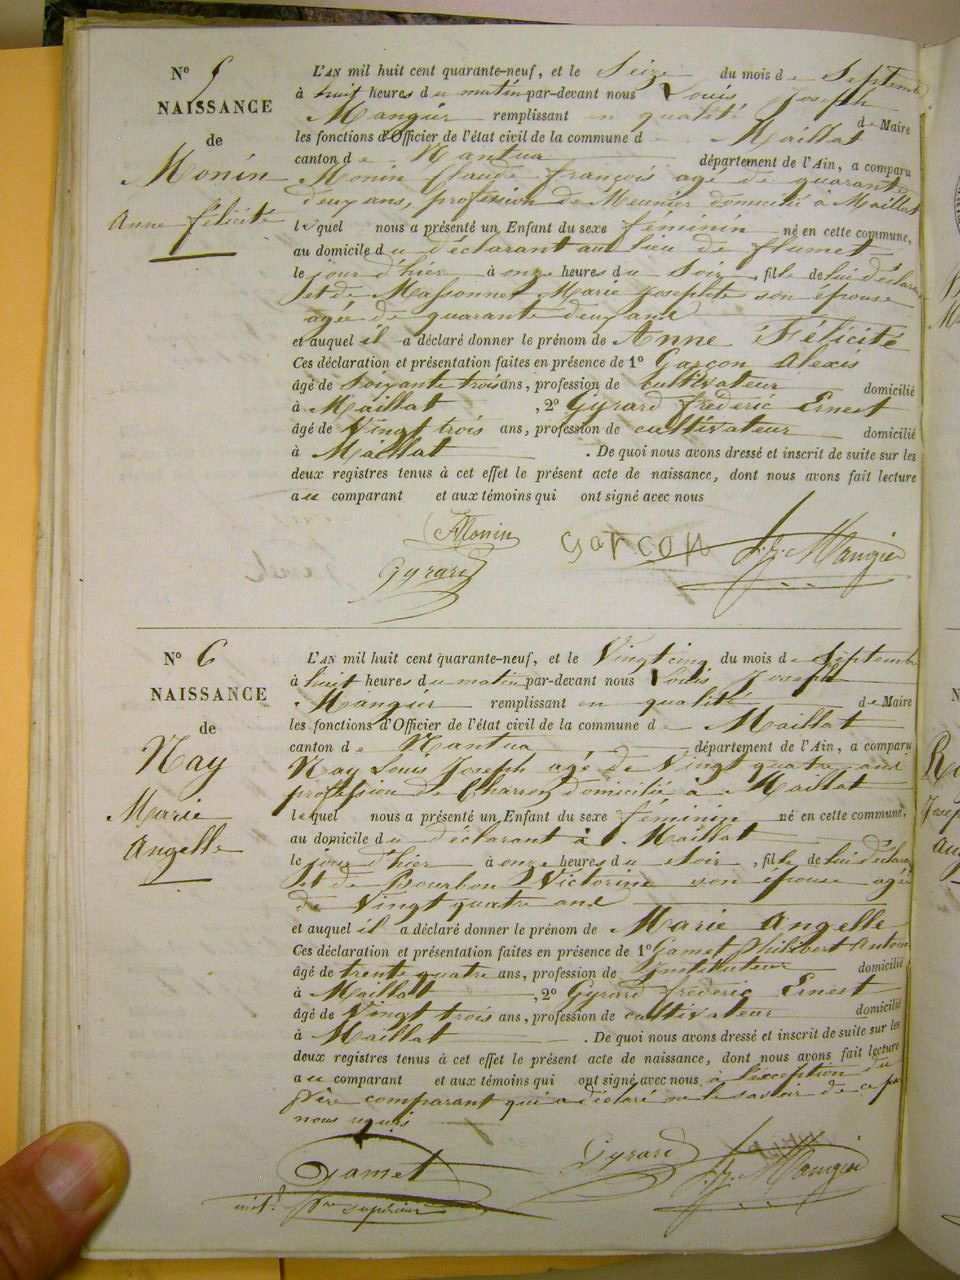 N° 5
NAISSANCE
de
Monin
Anne félicité
L'AN mil huit cent quarante-neuf, et le Seize du mois de Septembre
à huit heures du matin par-devant nous Louis Joseph
Mangier remplissant en qualité de Maire
les fonctions d'Officier de l'état civil de la commune d Maillat
canton de Nantua département de l'Ain, a comparu
Monin Claude françois agé de quarante
deux ans, profession de Meunier domicilié à Maillat
lequel nous a présenté un Enfant du sexe féminin né en cette commune,
au domicile du déclarant au lieu de flumet
le jour d'hier à onze heures du Soir, fille de lui déclarant
et de Massonnet Marie Josephte son épouse
agée de quarante deux ans
et auquel il a déclaré donner le prénom de Anne Félicité
Ces déclaration et présentation faites en présence de 1° Garçon Alexis
âgé de Soixante trois ans, profession de cultivateur domicilié
à Maillat, 2° Gyrard frederic Ernest
âgé de Vingt trois ans, profession de cultivateur domicilié
à Maillat. De quoi nous avons dressé et inscrit de suite sur les
deux registres tenus à cet effet le présent acte de naissance, dont nous avons fait lecture
au comparant et aux témoins qui ont signé avec nous
Monin
garcon
Gyrard
Mangier
N° 6
NAISSANCE
de
Nay
Marie
Angelle
L'AN mil huit cent quarante-neuf, et le Vingt cinq du mois de Septembre
à huit heures du matin par-devant nous Louis Joseph
Mangier remplissant en qualité de Maire
les fonctions d'Officier de l'état civil de la commune d Maillat
canton de Nantua département de l'Ain, a comparu
Nay Louis Joseph agé de Vingt quatre ans
profession de Charron domicilié à Maillat
lequel nous a présenté un Enfant du sexe féminin né en cette commune,
au domicile du déclarant à Maillat
le jour d'hier à onze heures du soir, fille de lui déclarant
et de Bourbon Victorine son épouse agée
de Vingt quatre ans
et auquel il a déclaré donner le prénom de Marie Angelle
Ces déclaration et présentation faites en présence de 1° Gamet Philibert Antoine
âgé de trente quatre ans, profession de Instituteur domicilié
à Maillat, 2° Gyrard frederic Ernest
âgé de Vingt trois ans, profession de cultivateur domicilié
à Maillat. De quoi nous avons dressé et inscrit de suite sur les
deux registres tenus à cet effet le présent acte de naissance, dont nous avons fait lecture
au comparant et aux témoins qui ont signé avec nous à l'exception du
père comparant qui a déclaré ne le savoir de ce par
nous requis
Gamet
Gyrard
Mangier
supérieur